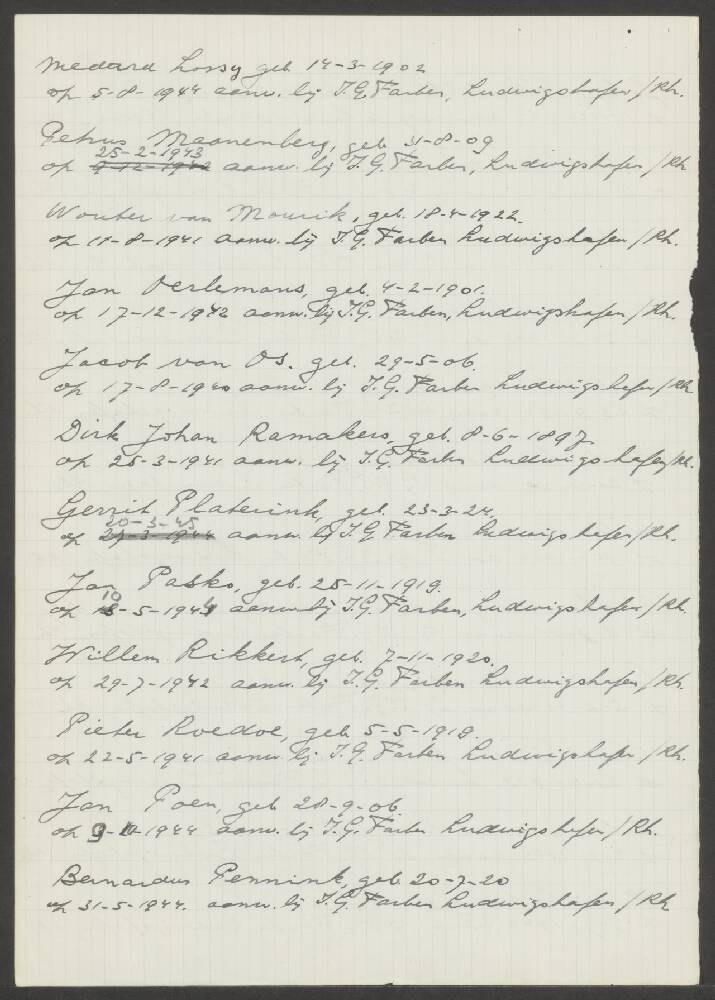 Medard Lossy geb 14-3-1902
op 5-8-1944 aanw. bij I.G. Farben, Ludwigshafen/Rh.
Petrus Maanenberg, geb. 31-8-09
25-2-1943
op 9-12-1942 aanw. bij I.G. Farben, Ludwigshafen/Rh
Wouter van Mourik, geb. 18-4-1922.
op 11-8-1941 aanw. bij I.G. Farben Ludwigshafen/Rh.
Jan Oerlemans, geb. 4-2-1901.
op 17-12-1942 aanw. bij I.G. Farben, Ludwigshafen/Rh.
Jacob van Os. geb. 29-5-06.
op 17-8-1940 aanw. bij I.G. Farben Ludwigshafen/Rh
Dirk Johan Ramakers, geb. 8-6-1897.
op 25-3-1941 aanw. bij I.G. Farben Ludwigshafen/Rh.
Gerrit Platerink, geb. 23-3-24.
20-3-45
op 1944 aanw. bij I.G. Farben Ludwigshafen/Rh.
Jan Pasko, geb. 25-11-1919.
op 10-5-1944 aanw. bij I.G. Farben, Ludwigshafen/Rh.
Willem Rikkert, geb. 7-11-1920.
op 29-7-1942 aanw. bij I.G. Farben Ludwigshafen/Rh.
Pieter Roedoe, geb 5-5-1919.
op 22-5-1941 aanw. bij I.G. Farben Ludwigshafen/Rh.
Jan Poen, geb 28-9-06.
op 9- -1944 aanw. bij I.G. Farben Ludwigshafen/Rh.
Bernardus Pennink, geb 20-7-20
op 31-5-1944. aanw. bij I.G. Farben Ludwigshafen/Rh